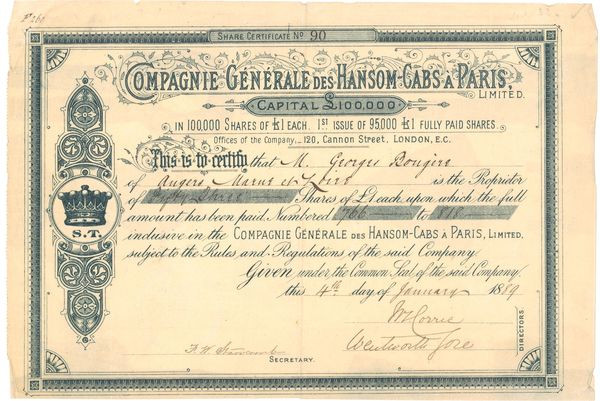 Share Certificate No 90
Compagnie Générale des Hansom-Cabs à Paris,
Limited.
Capital £100,000
in 100,000 Shares of £1 each. 1st issue of 95,000 £1 fully paid shares
Offices of the Company, 120, Cannon Street, London, E.C.
This is to certify that M. Georges
of Angers Maine et Loire is the Proprietor
of Fifty three Shares of £1 each upon which the full
amount has been paid. Numbered 766 to 818
inclusive in the Compagnie Générale des Hansom-Cabs à Paris, Limited,
subject to the Rules and Regulations of the said Company
Given under the Common Seal of the said Company,
this 4th day of January 1889
S.T.
W Corrie
Wentworth Gore
Directors.
Secretary.